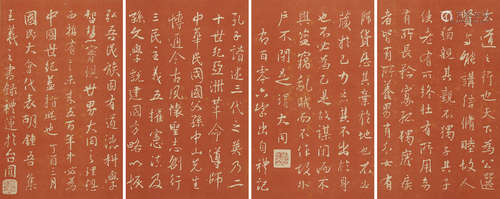 大道之行也天下為公選
賢與能講信脩睦故人
不獨親其親不獨子其子
使老有所終壯有所用幼
有所長矜寡孤獨廢疾
者皆有所養男有分女有
歸貨惡其棄於地也不必
藏於己力惡其不出於身
也不必為己是故謀閉而不
興盜竊亂賊而不作故外
戶不閉是謂大同
右百零六字出自禮記
孔子述三代之英乃二
十世紀亞洲革命導師
中華民國國父孫中山先生
博通今古夙懷聖志創行
三民主義五權憲法及
孫文學說建國方略
弘吾民族固有道德科學
智慧實現世界大同之理想
有之未來五百年必為
中國世紀蓋始此 三月
國民大會代表胡鍾吾集
之書錄